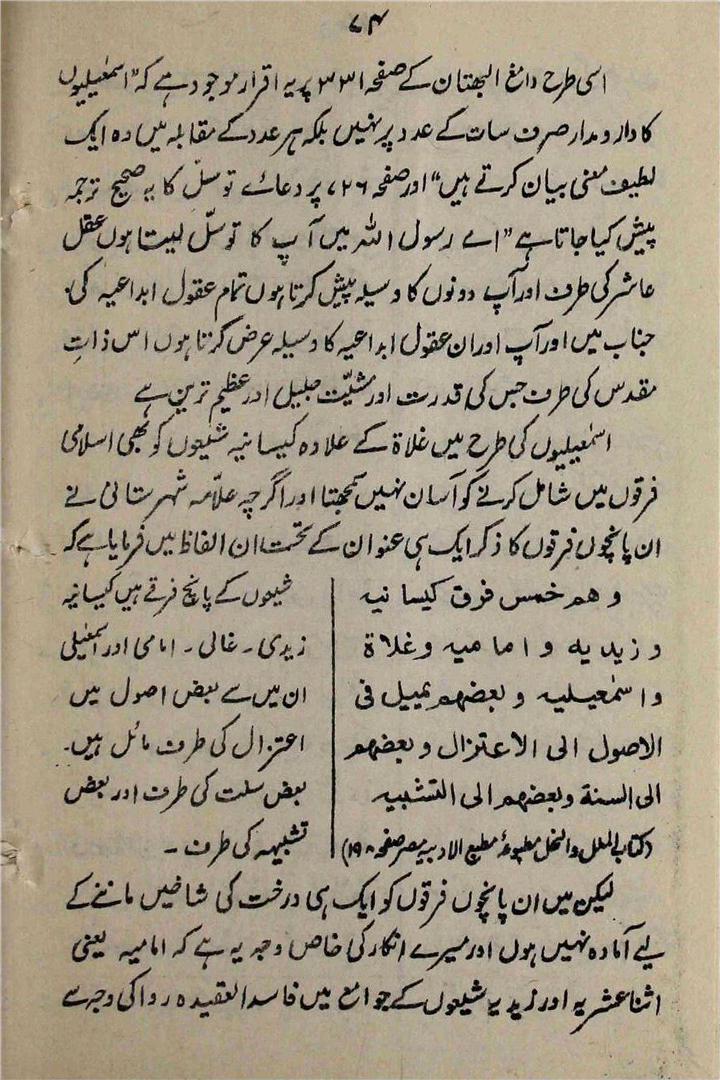 ۷۴
اسی طرح دامغ البہتان کے صفحہ ۳۳۱ پر یہ اقرار موجود ہے کہ "اسمٰعیلیوں
کا دارومدار صرف سات کے عدد پر نہیں بلکہ ہر عدد کے مقابلہ میں وہ ایک
لطیف معنی بیان کرتے ہیں" اور صفحہ ۷۲۶ پر دعائے توسّل کا یہ صحیح ترجمہ
پیش کیا جاتا ہے "اے رسول اللہ میں آپ کا توسّل لیتا ہوں عقل
عاشر کی طرف اور آپ دونوں کا وسیلہ پیش کرتا ہوں تمام عقول ابداعیہ کی
جناب میں اور آپ اور ان عقول ابداعیہ کا وسیلہ عرض کرتا ہوں اس ذاتِ
مقدس کی طرف جس کی قدرت اور مشیّت جلیل اور عظیم ترین ہے
اسمٰعیلیوں کی طرح میں غلاۃ کے علاوہ کیسانیہ شیعوں کو بھی اسلامی
فرقوں میں شامل کرنے کو آسان نہیں سمجھتا اور اگرچہ علّامہ شہرستانی نے
ان پانچوں فرقوں کا ذکر ایک ہی عنوان کے تحت ان الفاظ میں فرمایا ہے کہ
وهم خمس فرق كيسانيه
وزيديه و اماميه وغلاة
واسمٰعيليه وبعضهم يميل فى
الاصول الى الاعتزال وبعضهم
الى السنة وبعضهم الى التشبيه
(کتاب الملل والنحل مطبوعۂ مطبع الادبیہ مصر صفحہ ۱۹۸)
شیعوں کے پانچ فرقے ہیں کیسانیہ
زیدی۔ غالی۔ امامی اور اسمٰعیلی
ان میں سے بعض اصول میں
اعتزال کی طرف مائل ہیں۔
بعض سنت کی طرف اور بعض
تشبیہہ کی طرف۔
لیکن میں ان پانچوں فرقوں کو ایک ہی درخت کی شاخیں ماننے کے
لیے آمادہ نہیں ہوں اور میرے انکار کی خاص وجہ یہ ہے کہ امامیہ یعنی
اثنا عشریہ اور زیدیہ شیعوں کے جوامع میں فاسد العقیدہ رواۃ کی وجہ سے